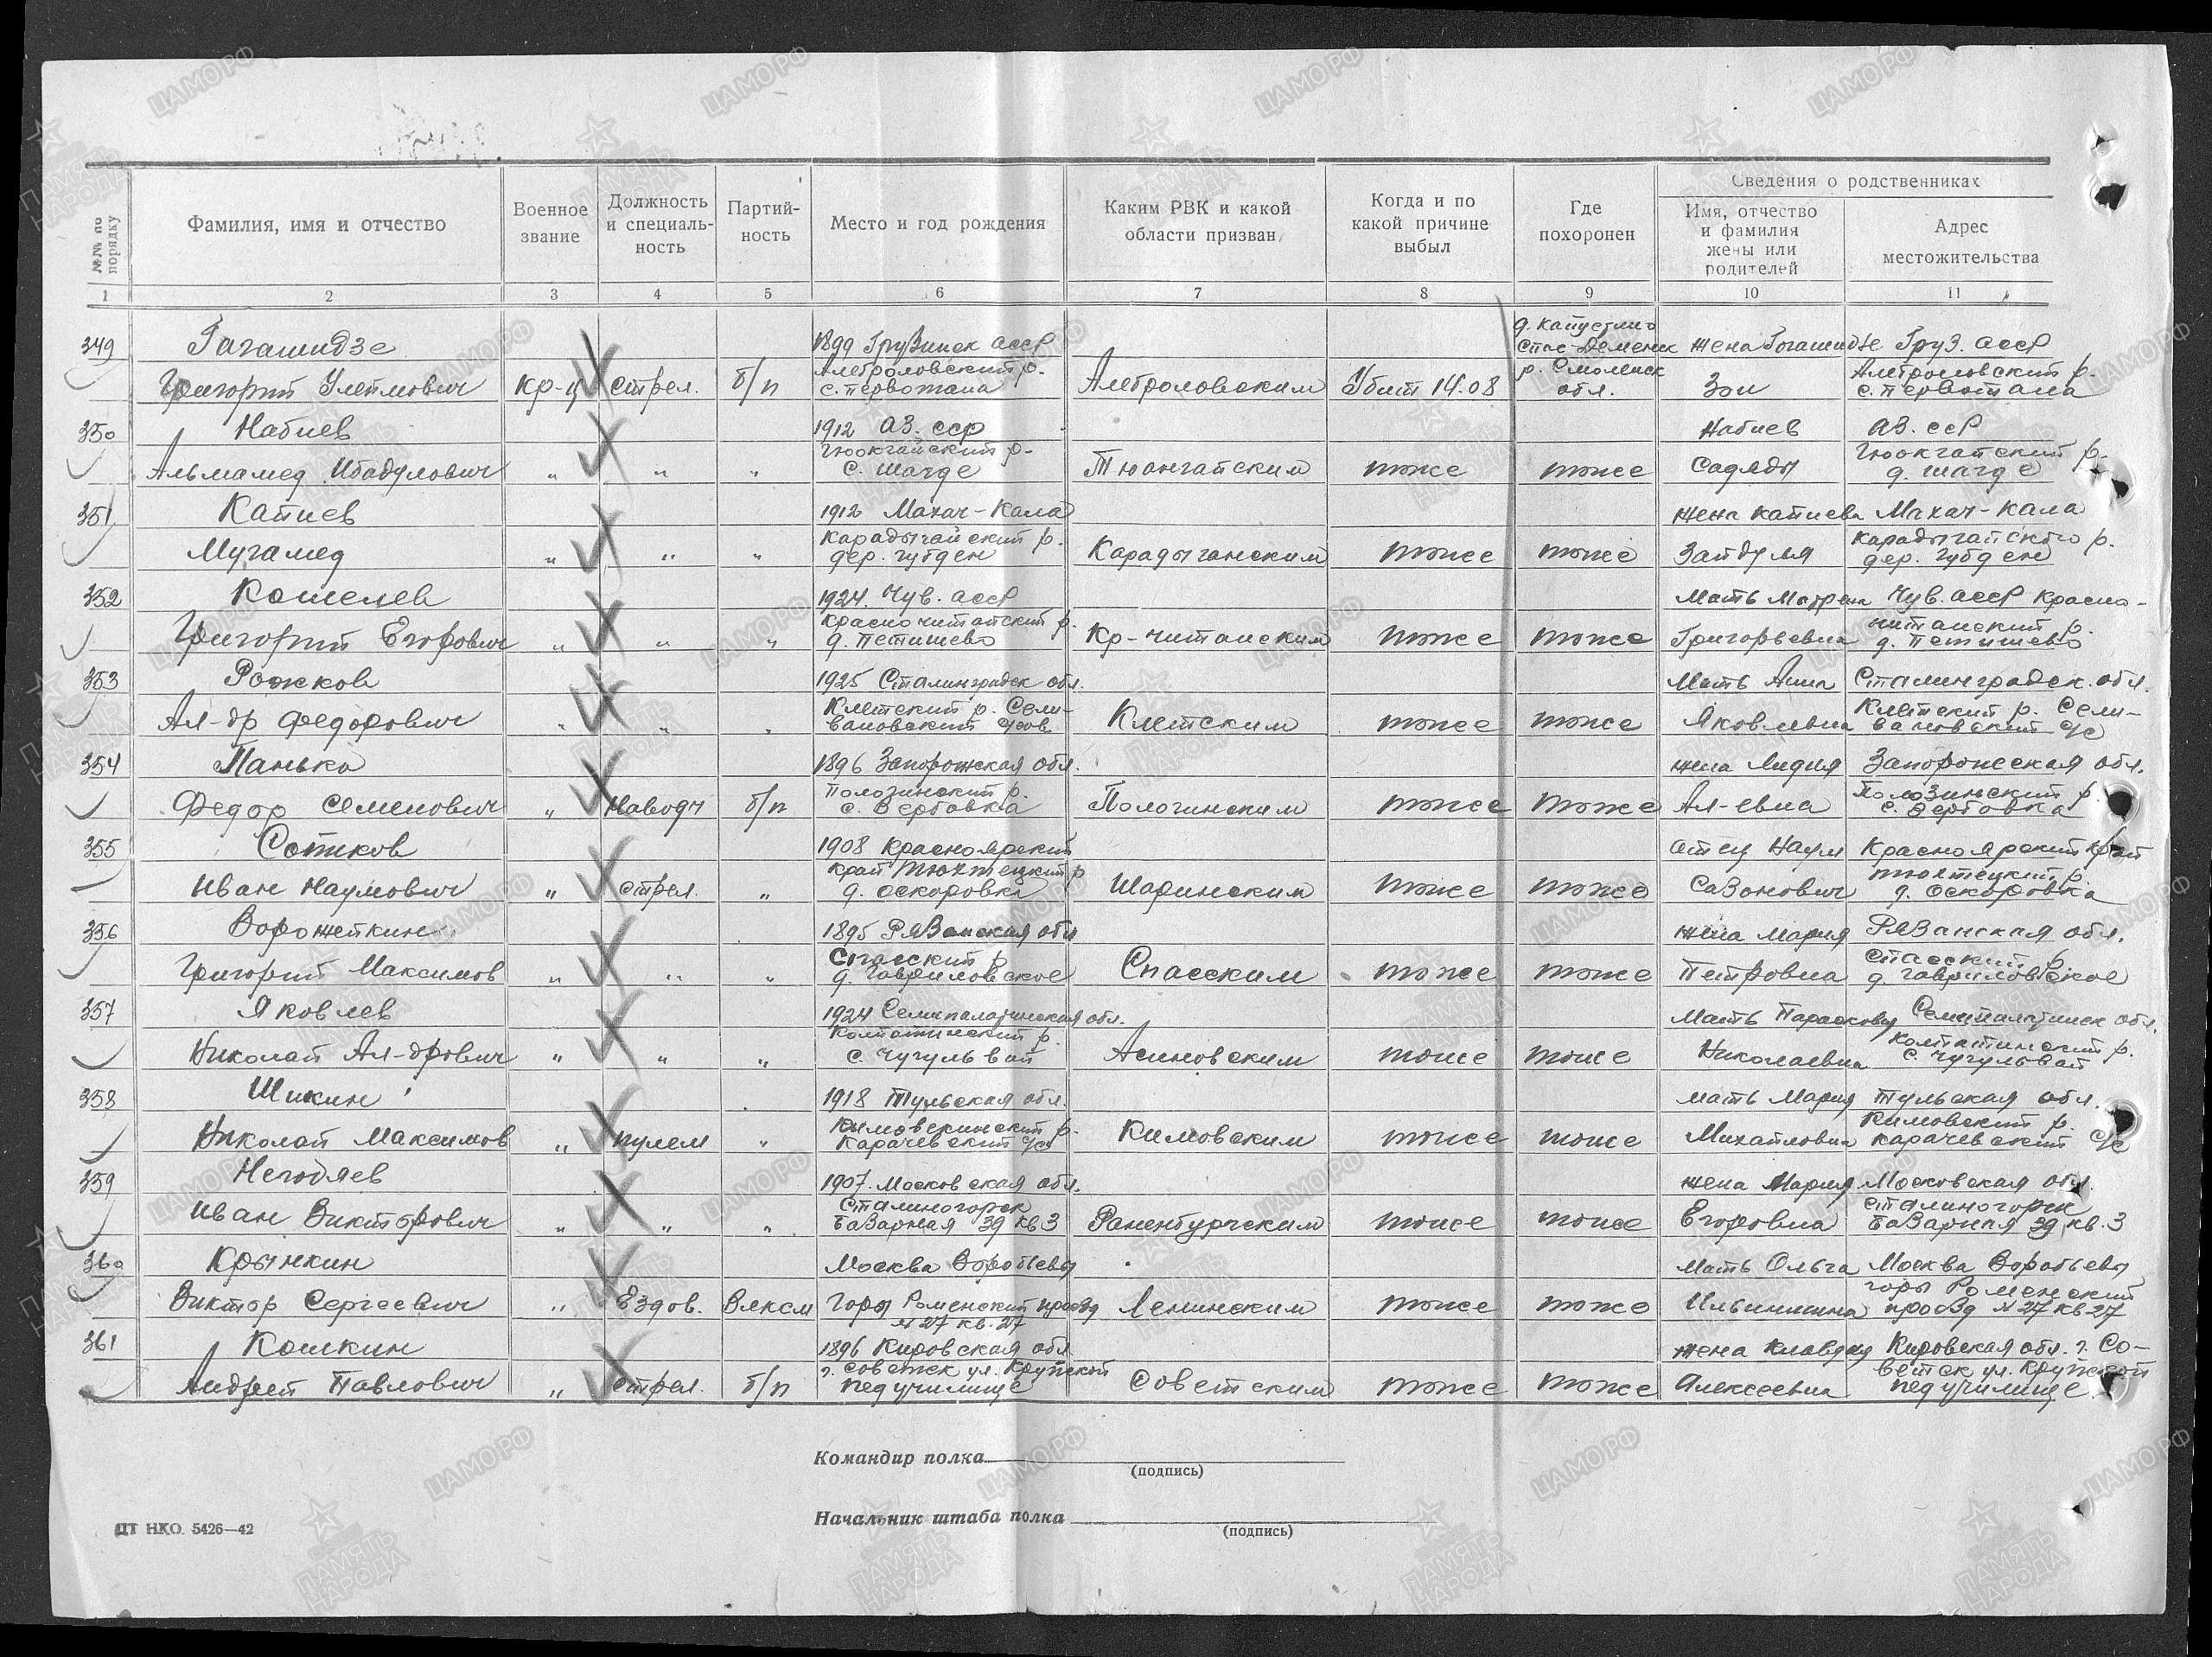 №№ по порядку
Фамилия, имя и отчество
Военное звание
Должность и специаль-ность
Партий-ность
Место и год рождения
Каким РВК и какой области призван
Когда и по какой причине выбыл
Где похоронен
Сведения о родственниках
Имя, отчество и фамилия жены или родителей
Адрес местожительства
1 2 3 4 5 6 7 8 9 10 11
д. Капустино
349 Гагашидзе 1899 Грузинск АССР Спас-Деменск жена Гогашидзе Груз. АССР
р. Смоленск
Григорий кр-ц стрел. б/п с. Первотана Амброловским Убит 14.08 обл. Зои с. Первотана
350 Набиев 1912 Аз. ССР Набиев Аз. ССР
Альмамед Ибадулович " " " с. Шагде тоже тоже Садяды д. Шагде
351 Капиев 1912 Махач-Кала жена Капиева Махач-Кала
Мугамед " " " дер. Губден тоже тоже дер. Губден
352 Кошелев 1924 Чув. АССР Мать Матрена Чув. АССР Красно-
Красночитайский р. читайский р.
Григорий Егорович " " " д. Петишево Кр-читайским тоже тоже Григорьевна д. Петишево
353 Рожков 1925 Сталинградск обл. Мать Анна Сталинградск. обл.
Клетский р. Сели- Клетский р. Сели-
Ал-др Федорович " " " вановский с/сов Клетским тоже тоже Яковлевна вановский с/с
354 Панько 1896 Запорожская обл. жена Лидия Запорожская обл.
Пологинский р. Пологинский р.
Федор Семенович " Наводч б/п с. Вербовка Пологинским тоже тоже Ал-евна с. Вербовка
355 Сотков 1908 Красноярский отец Наум Красноярский край
край Тюхтецкий р Тюхтецкий р.
Иван Наумович " стрел. " д. Оскоровка Шаринским тоже тоже Сазонович д. Оскоровка
356 Ворожейкин 1895 Рязанская обл жена Мария Рязанская обл.
Спасский р Спасский р.
Григорий Максимов " " " д. Гавриловское Спасским тоже тоже Петровна д. Гавриловское
357 Яковлев 1924 Семипалатинская обл. Мать Парасковья Семипалатинск обл.
Николай Ал-дрович " " " Асиновским тоже тоже Николаевна
358 Шикин 1918 Тульская обл. мать Мария Тульская обл.
Кимовский р.
Николай Максимов " пулем " Карачевский с/с Кимовским тоже тоже Михайловна Карачевский с/с
359 Негодяев 1907 Московская обл. жена Мария Московская обл.
Сталиногорск Сталиногорск
Иван Викторович " " " Базарная 39 кв 3 Раненбургским тоже тоже Егоровна Базарная 39 кв. 3
360 Крынкин Москва Воробьевы Мать Ольга Москва Воробьевы
горы Роменский
Виктор Сергеевич " Ездов. ВЛКСМ горы Роменский проезд Ленинским тоже тоже Ильинишна проезд № 27 кв 27
№ 27 кв. 27
361 Кошкин 1896 Кировская обл жена Клавдия Кировская обл. г. Со-
г. Советск ул. Крупской ветск ул. Крупской
Андрей Павлович " стрел. б/п педучилище Советским тоже тоже Алексеевна педучилище
Командир полка
(подпись)
Начальник штаба полка
(подпись)
ЦТ НКО. 5426—42
ЦАМО.РФ
ПАМЯТЬ НАРОДА